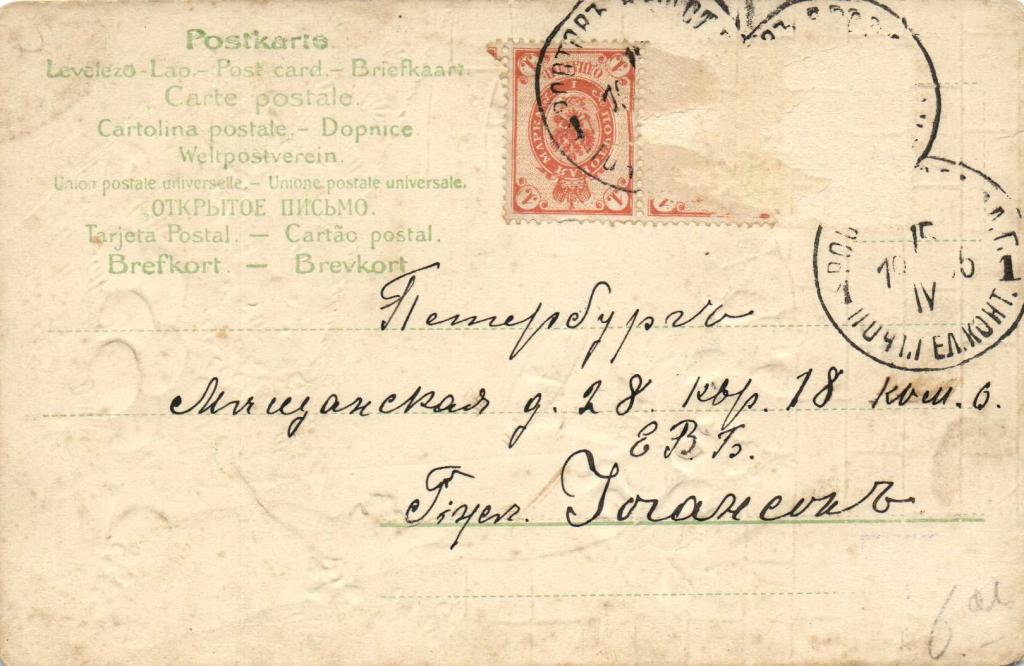 Postkarte.
Levelező-Lap.– Post card.– Briefkaart.
Carte postale.
Cartolina postale.– Dopnice
Weltpostverein.
Union postale universelle.– Unione postale universale.
ОТКРЫТОЕ ПИСЬМО.
Tarjeta Postal. – Cartão postal.
Brefkort. – Brevkort
1
15
IV
ПОЧТ.ТЕЛ.КОНТ.
1
Петербургъ
Мѣщанская д. 28. квр. 18 ком. 6.
Е В Б.
Гцел. Іогансонъ